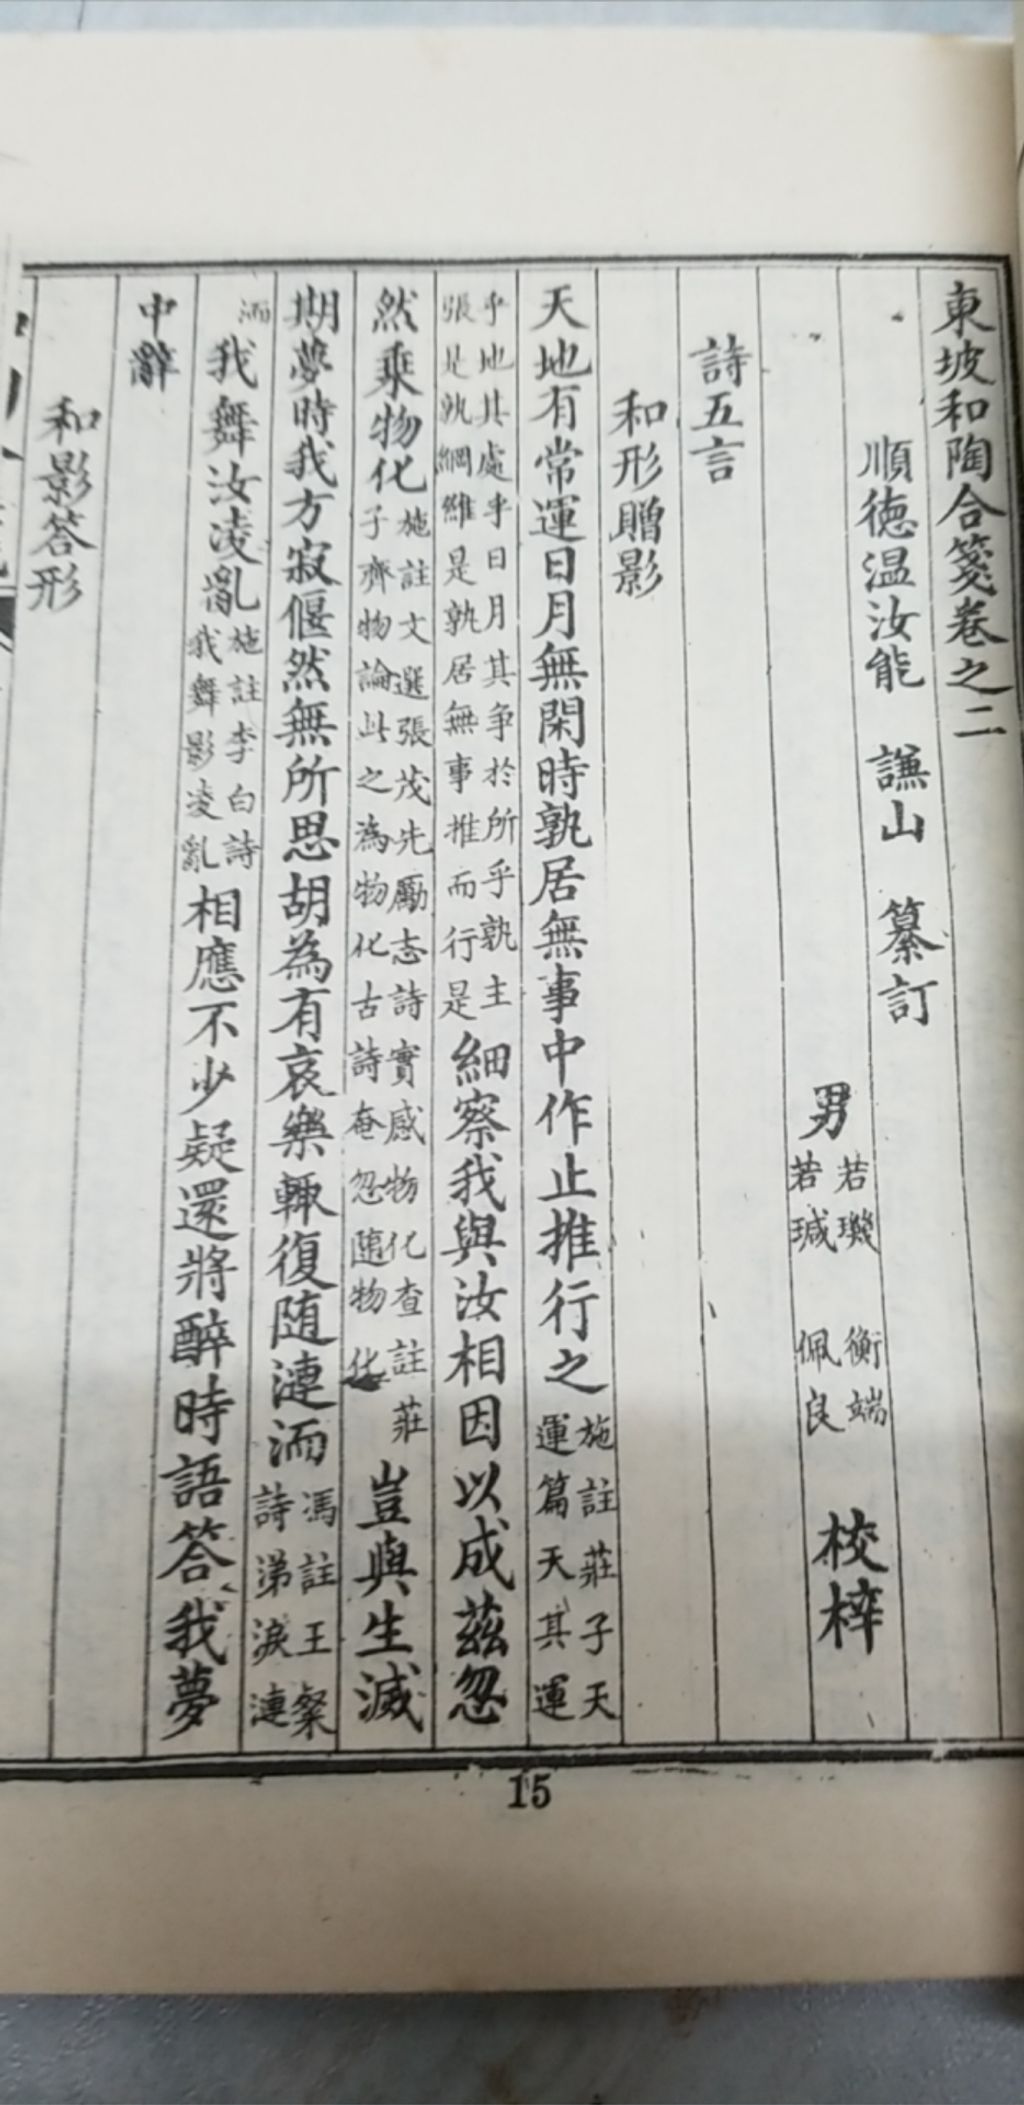 東坡和陶合箋卷之二
順德温汝能　謙山　纂訂
男　若璣　衡端　若瑊　佩良　校梓
詩五言
和形贈影
天地有常運日月無閑時孰居無事中作止推行之施註莊子天運篇天其運
乎地其處乎日月其爭於所乎孰主張是孰綱維是孰居無事推而行是細察我與汝相因以成茲忽
然乘物化施註文選張茂先勵志詩實感物化查註莊子齊物論此之為物化古詩奄忽隨物化豈與生滅
期夢時我方寂偃然無所思胡為有哀樂輒復随漣洏馮註王粲詩涕淚漣
洏我舞汝凌亂施註李白詩我舞影凌亂相應不少疑還將醉時語答我夢
中辭
和影答形
15